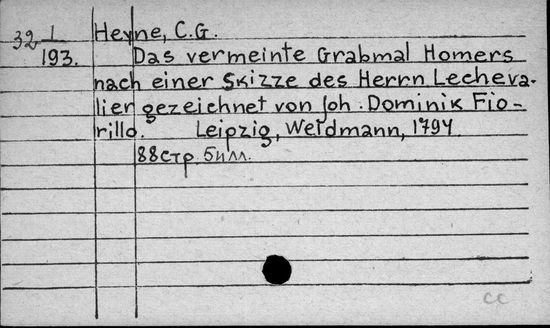 32 1/193. Heyne, C.G.
Das vermeinte Grabmal Homers
nach einer Skizze des Herrn Lecheva-
lier gezeichnet von Joh. Dominik Fio-
rillo. Leipzig, Weidmann, 1794
88стр. 5илл.
cc